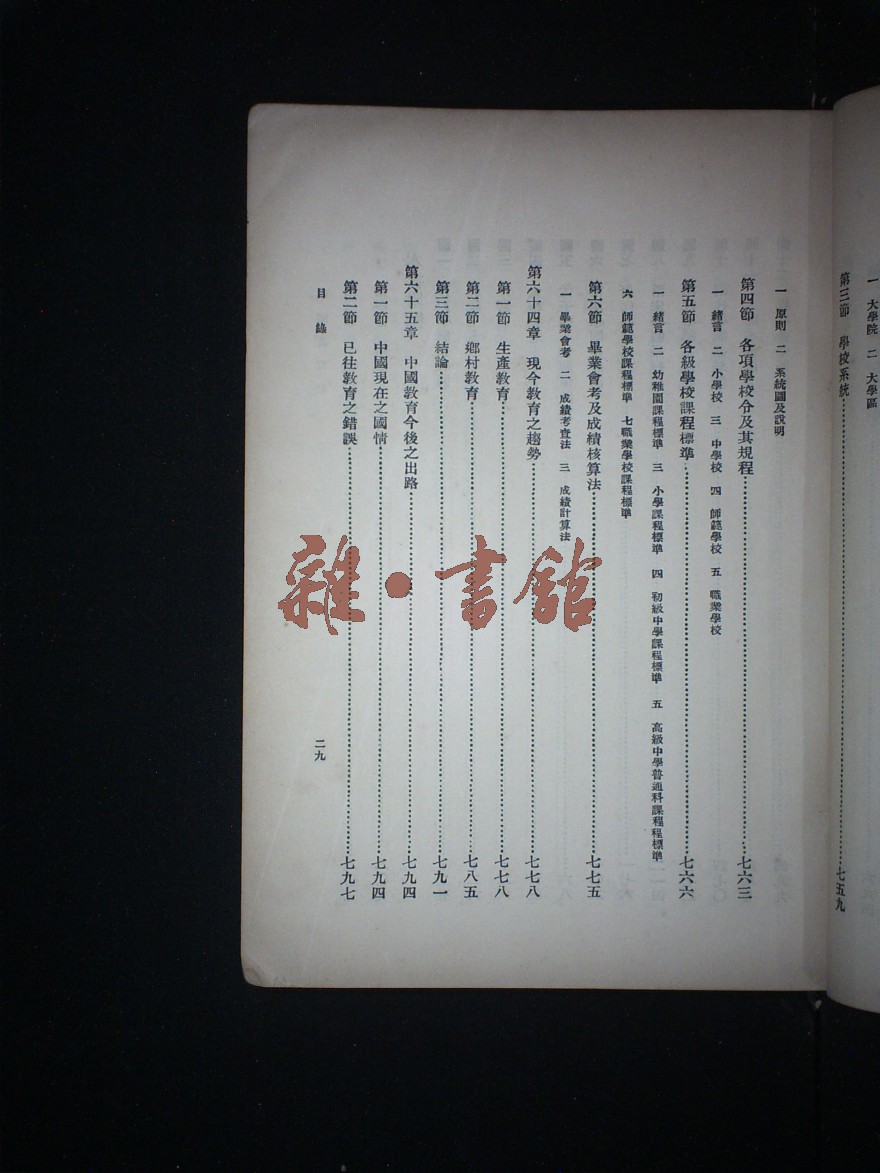 一 大學院 二 大學區
第三節 學校系統……七五九
一 原則 二 系統圖及說明
第四節 各項學校分及其規程……七六三
一 緒言 二 小學校 三 中學校 四 師範學校 五 職業學校
第五節 各級學校課程標準……七六六
一 緒言 二 幼稚園課程標準 三 小學課程標準 四 初級中學課程標準 五 高級中學普通科課程程標準
六 師範學校課程標準 七職業學校課程標準
第六節 畢業會考及成績核算法……七七五
一 畢業會考 二 成績考查法 三 成績計算法
第六十四章 現今教育之趨勢……七七八
第一節 生產教育……七七八
第二節 鄉村教育……七八五
第三節 結論……七九一
第六十五章 中國教育今後之出路……七九四
第一節 中國現在之國情……七九四
第二節 已往教育之錯誤……七九七
目錄
二九
雜·書館